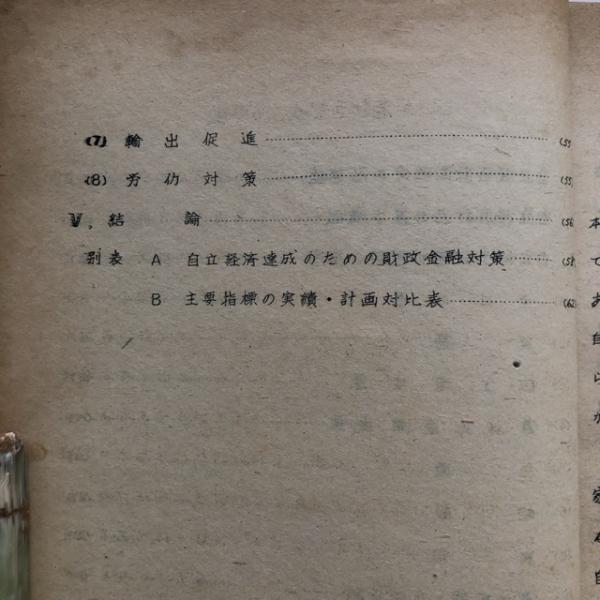 (7) 輸出促進
(8) 労仂対策 (55
V. 結論 (56
別表 A 自立経済達成のための財政金融対策
B 主要指標の実績・計画対比表 (62
本
で
お
自
ら